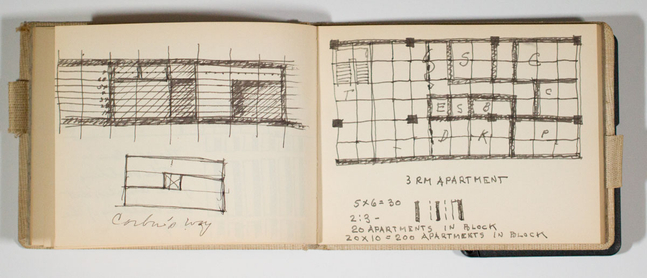 Corbu's way
S G
T C
E S B
D K P
3 RM APARTMENT
5X6=30
2:3-
20 APARTMENTS IN BLOCK
20X10=200 APARTMENTS IN BLOCK